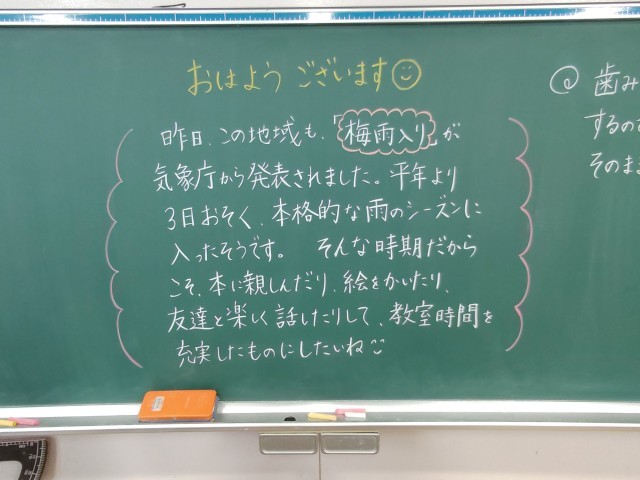 おはようございます
昨日、この地域も、「梅雨入り」が
気象庁から発表されました。平年より
3日おそく、本格的な雨のシーズンに
入ったそうです。 そんな時期だから
こそ、本に親しんだり、絵をかいたり、
友達と楽しく話したりして、教室時間を
充実したものにしたいね
@ 歯み
するのを
そのまま